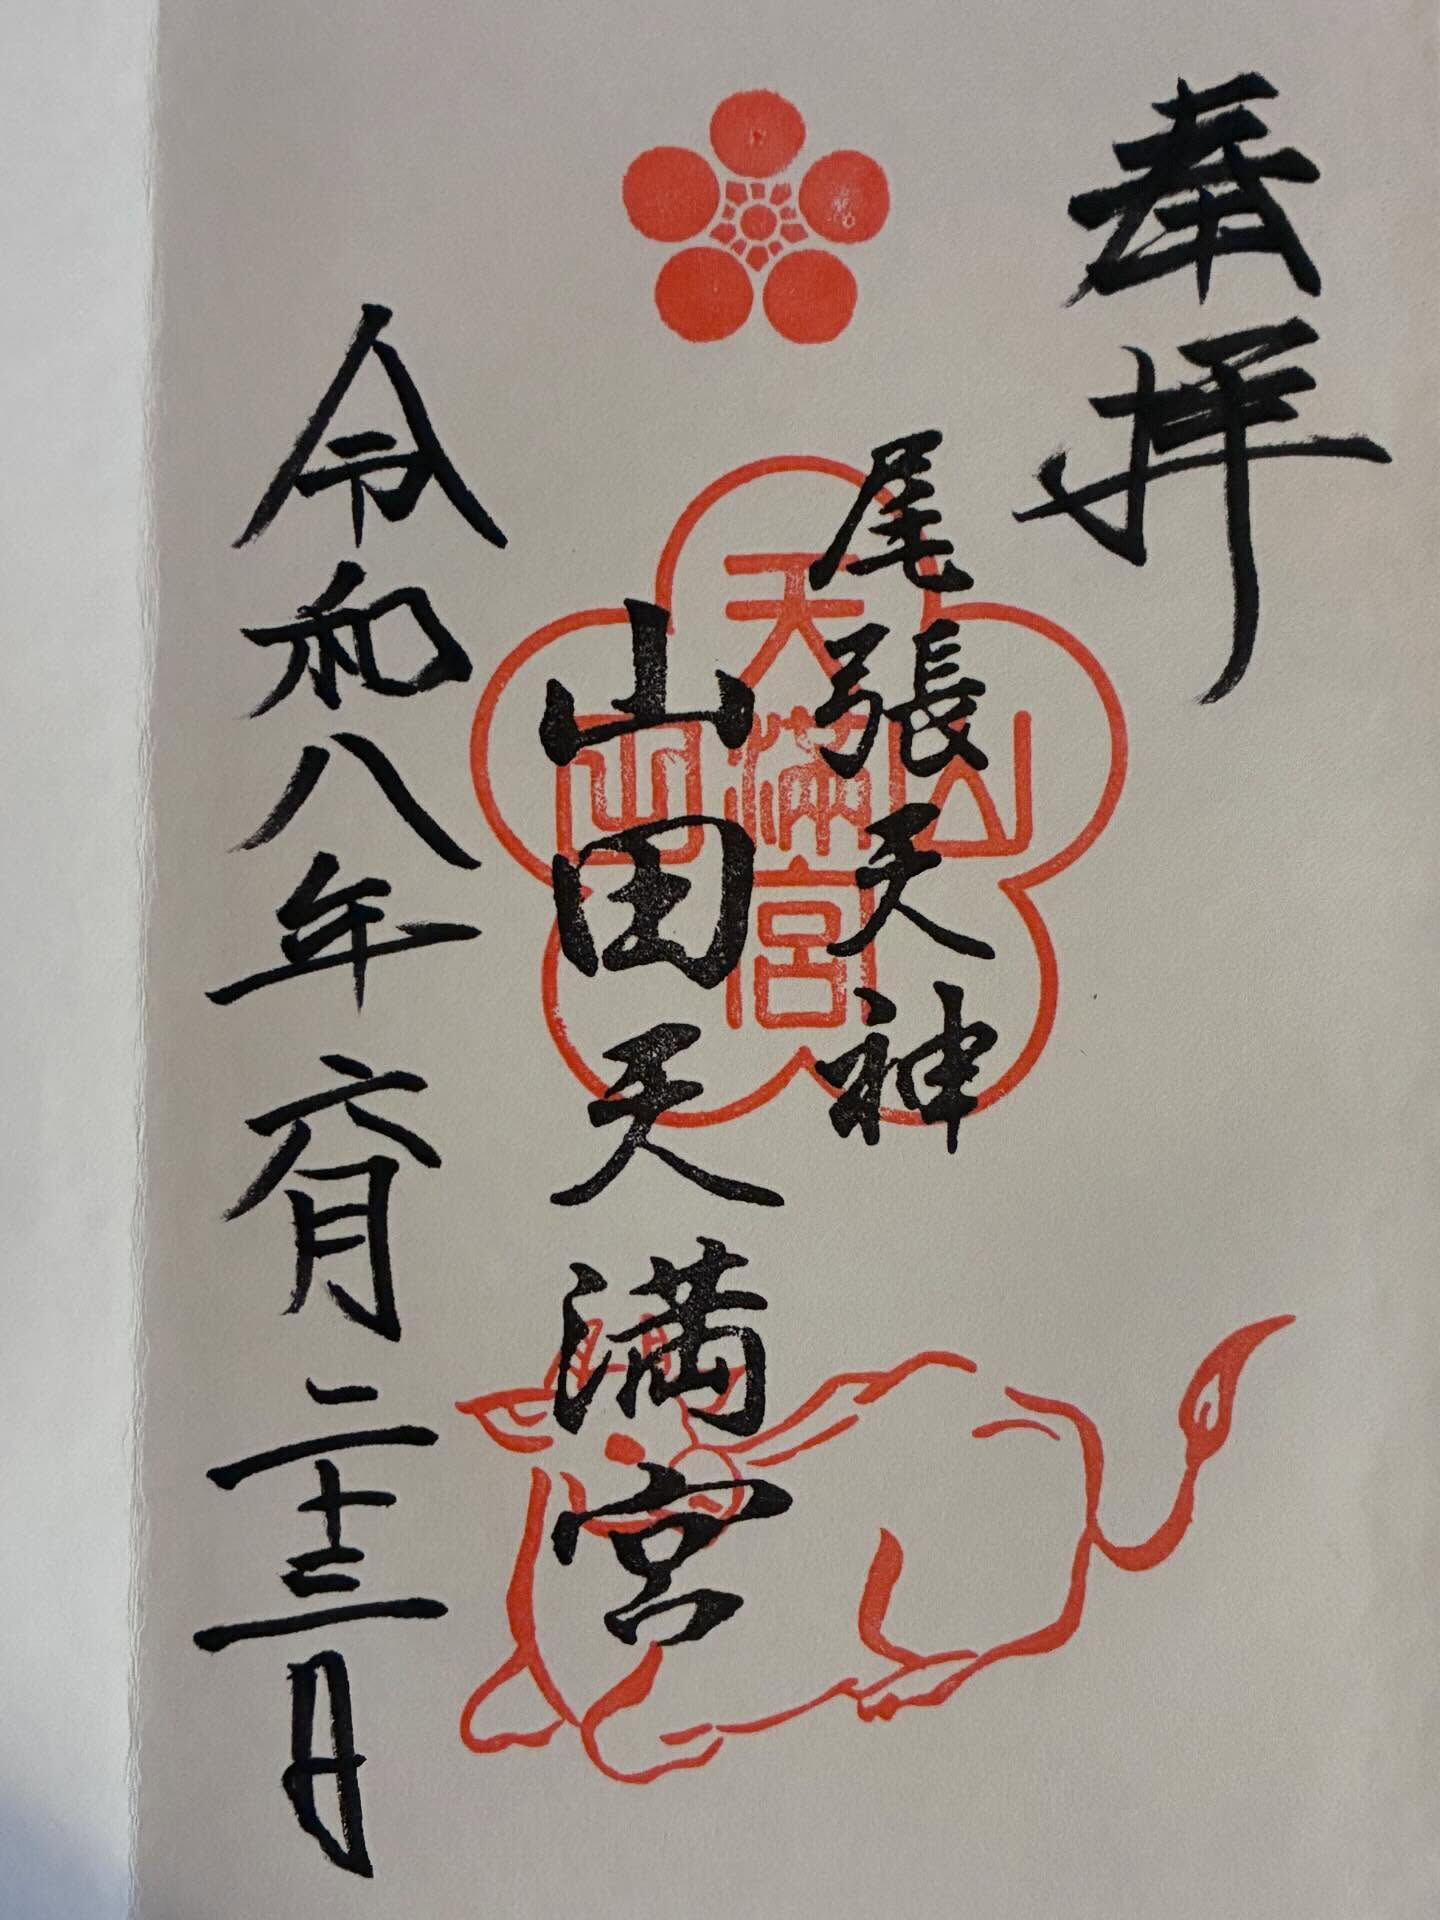 奉拝
尾張天神
山田天満宮
令和八年六月二十三日
天満宮
山田